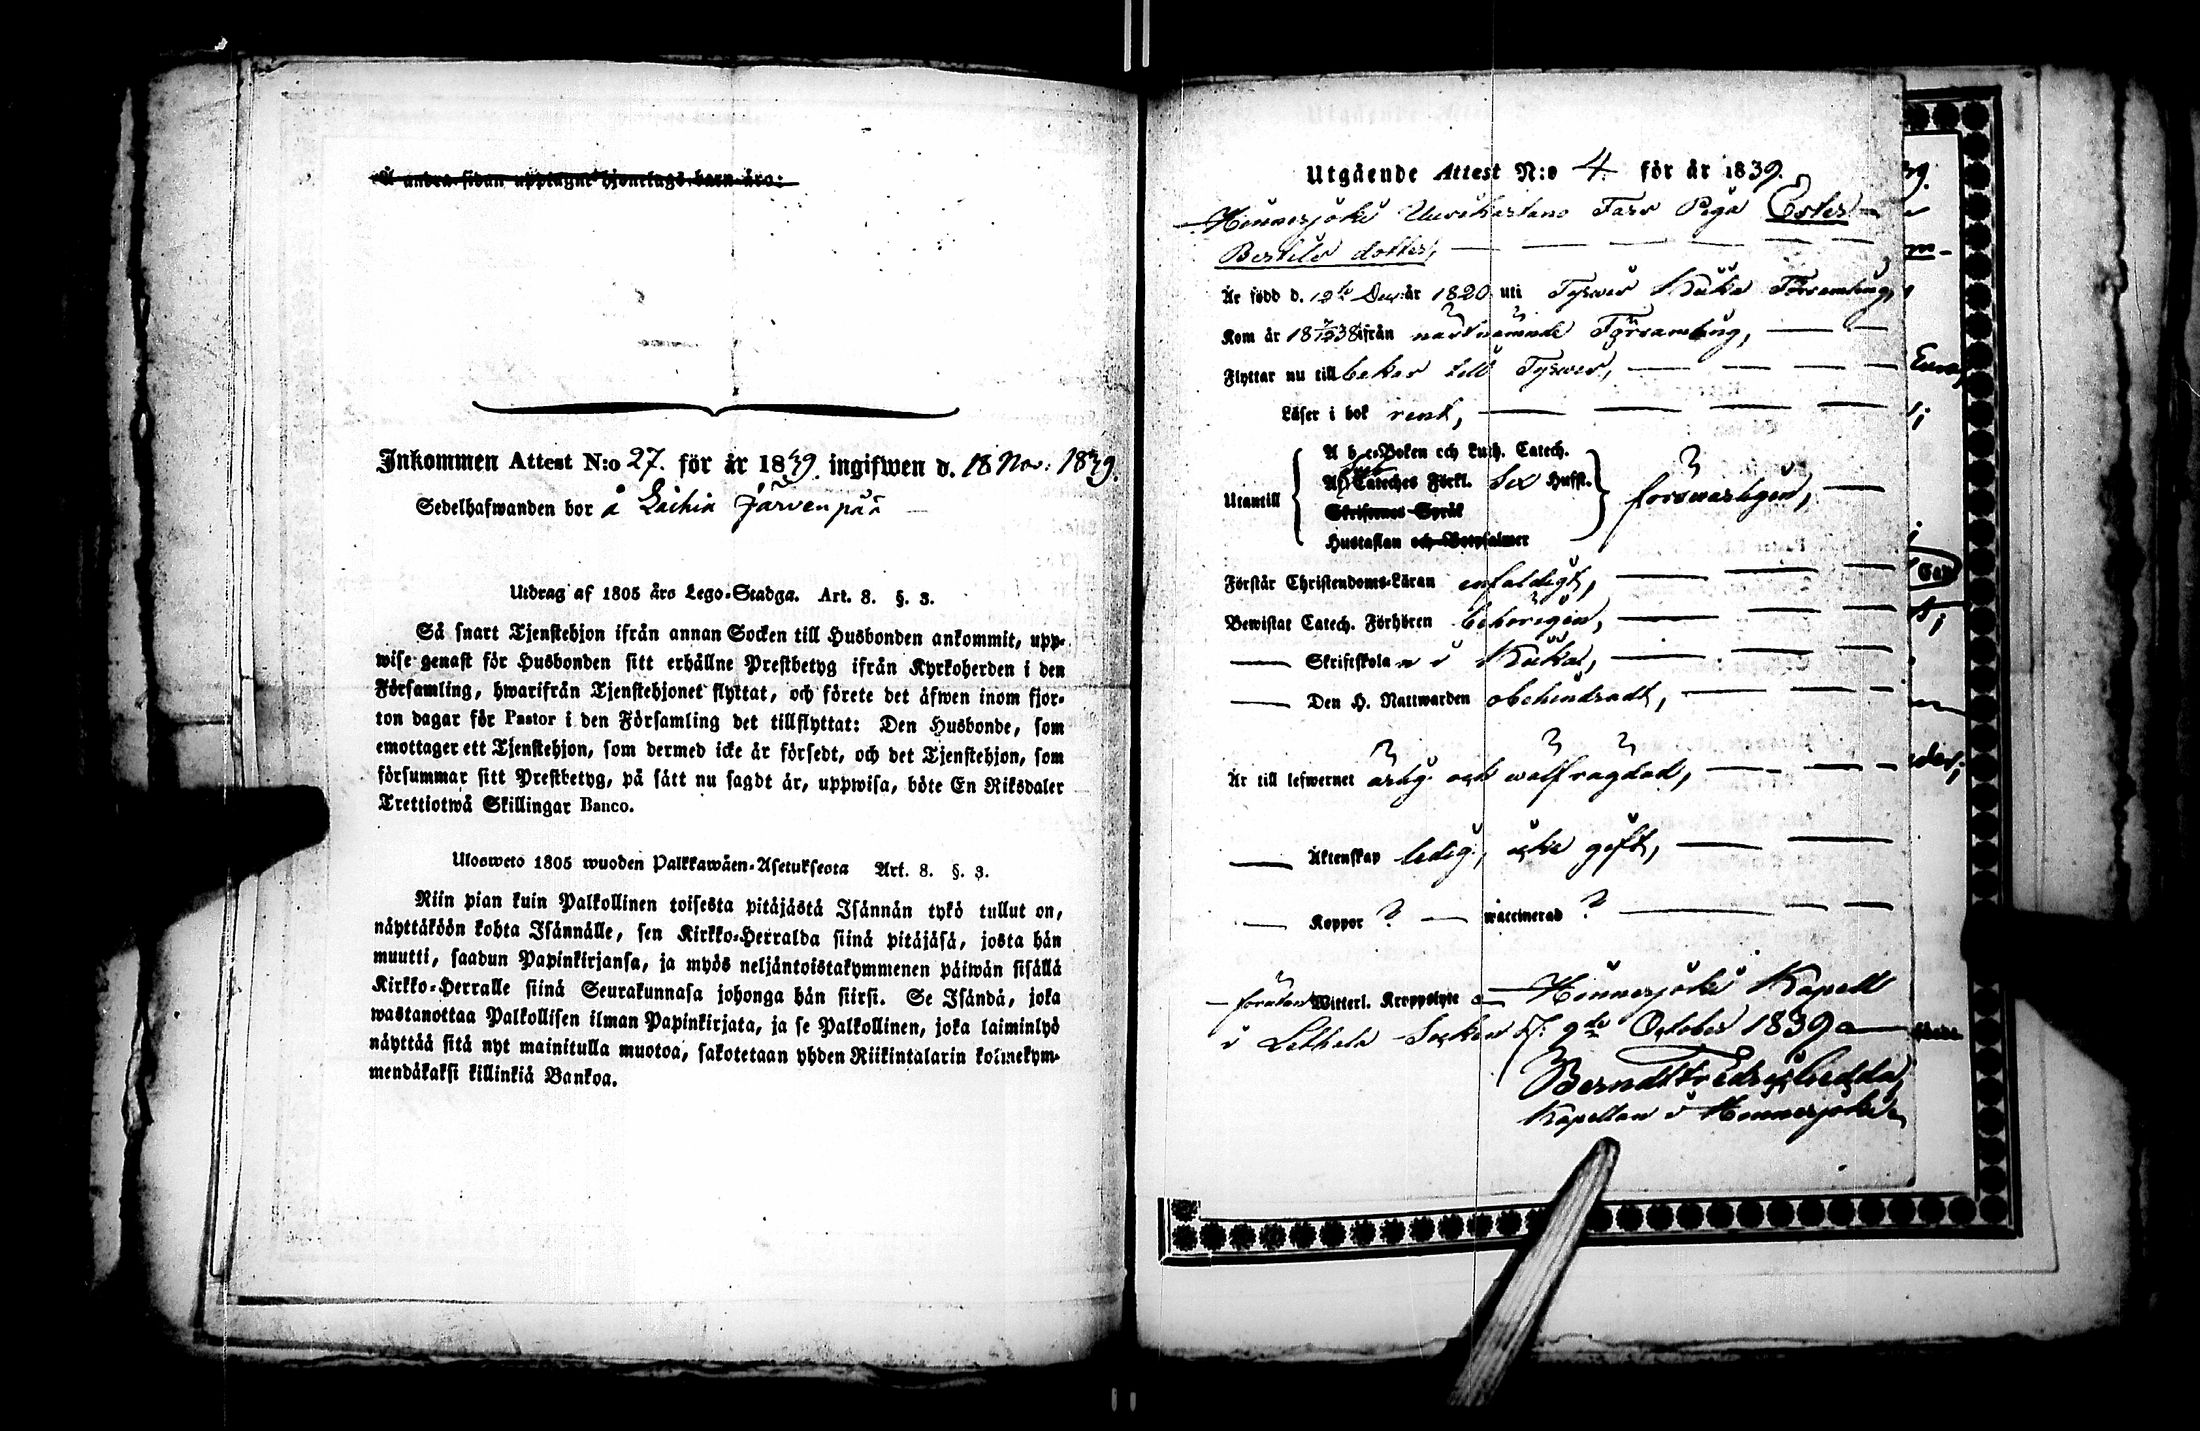 Å andra sidan upptagne tjenstags barn äro:
Inkommen Attest N:o 27. för år 1839. ingifwen d. 18 Nov: 1839.
Sedelhafwanden bor å Laihia Järvenpää
Utdrag af 1805 års Lego-Stadga. Art. 8. §. 3.
Så snart Tjenstehjon ifrån annan Socken till Husbonden ankommit, upp-
wise genast för Husbonden sitt erhållne Prestbetyg ifrån Kyrkoherden i den
Församling, hwarifrån Tjenstehjonet flyttat, och förete det äfwen inom fjor-
ton dagar för Pastor i den Församling det tillflyttat: Den Husbonde, som
emottager ett Tjenstehjon, som dermed icke är försedt, och det Tjenstehjon, som
försummar sitt Prestbetyg, på sätt nu sagdt är, uppwisa, böte En Riksdaler
Trettiotwå Skillingar Banco.
Ulosweto 1805 wuoden Palkkawäen-Asetuksesta Art. 8. §. 3.
Niin pian kuin Palkollinen toisesta pitäjästä Isännän tykö tullut on,
näyttäköön kohta Isännälle, sen Kirkko-Herralda siinä pitäjäsä, josta hän
muutti, saadun Papinkirjansa, ja myös neljäntoistakymmenen päiwän sisällä
Kirkko-Herralle siinä Seurakunnasa johonga hän siirsi. Se Isändä, joka
wastanottaa Palkollisen ilman Papinkirjata, ja se Palkollinen, joka laiminlyö
näyttää sitä nyt mainitulla muotoa, sakotetaan yhden Riikintalarin kolmekym-
mendäkaksi killinkiä Bankoa.
Utgående Attest N:o 4. för år 1839.
Hinnerjoki Uusikartano Tarv Piga Ester
Bertils dotter,
Är född d. 12te Dec: år 1820 uti Tyrvis Kiika Församling,
Kom år 18 38 ifrån nästnämnde Församling,
Flyttar nu tillbakar till Tyrvis,
Läser i bok rent,
A b c-Boken och Luth. Catech.
Utantill A Cateches Förkl. Sex Hufst. försvarligen,
Skriftenes Språk
Hustaflan och Botpsalmer
Förstår Christendoms-Läran enfaldigt,
Bewistat Catech. Förhören behörigen,
Skriftskolan i Kiika,
Den H. Nattwarden obehindradt,
Är till lefwernet ärlig och wälfrägdad,
Äktenskap ledig, icke gift,
Koppor ? waccinerad ?
förutan Witterl. Kroppslyte Hinnerjoki Kapell
i Lethala Socken d. 9de October 1839
Berndt Fredr:
Kapellan i Hinnerjoki